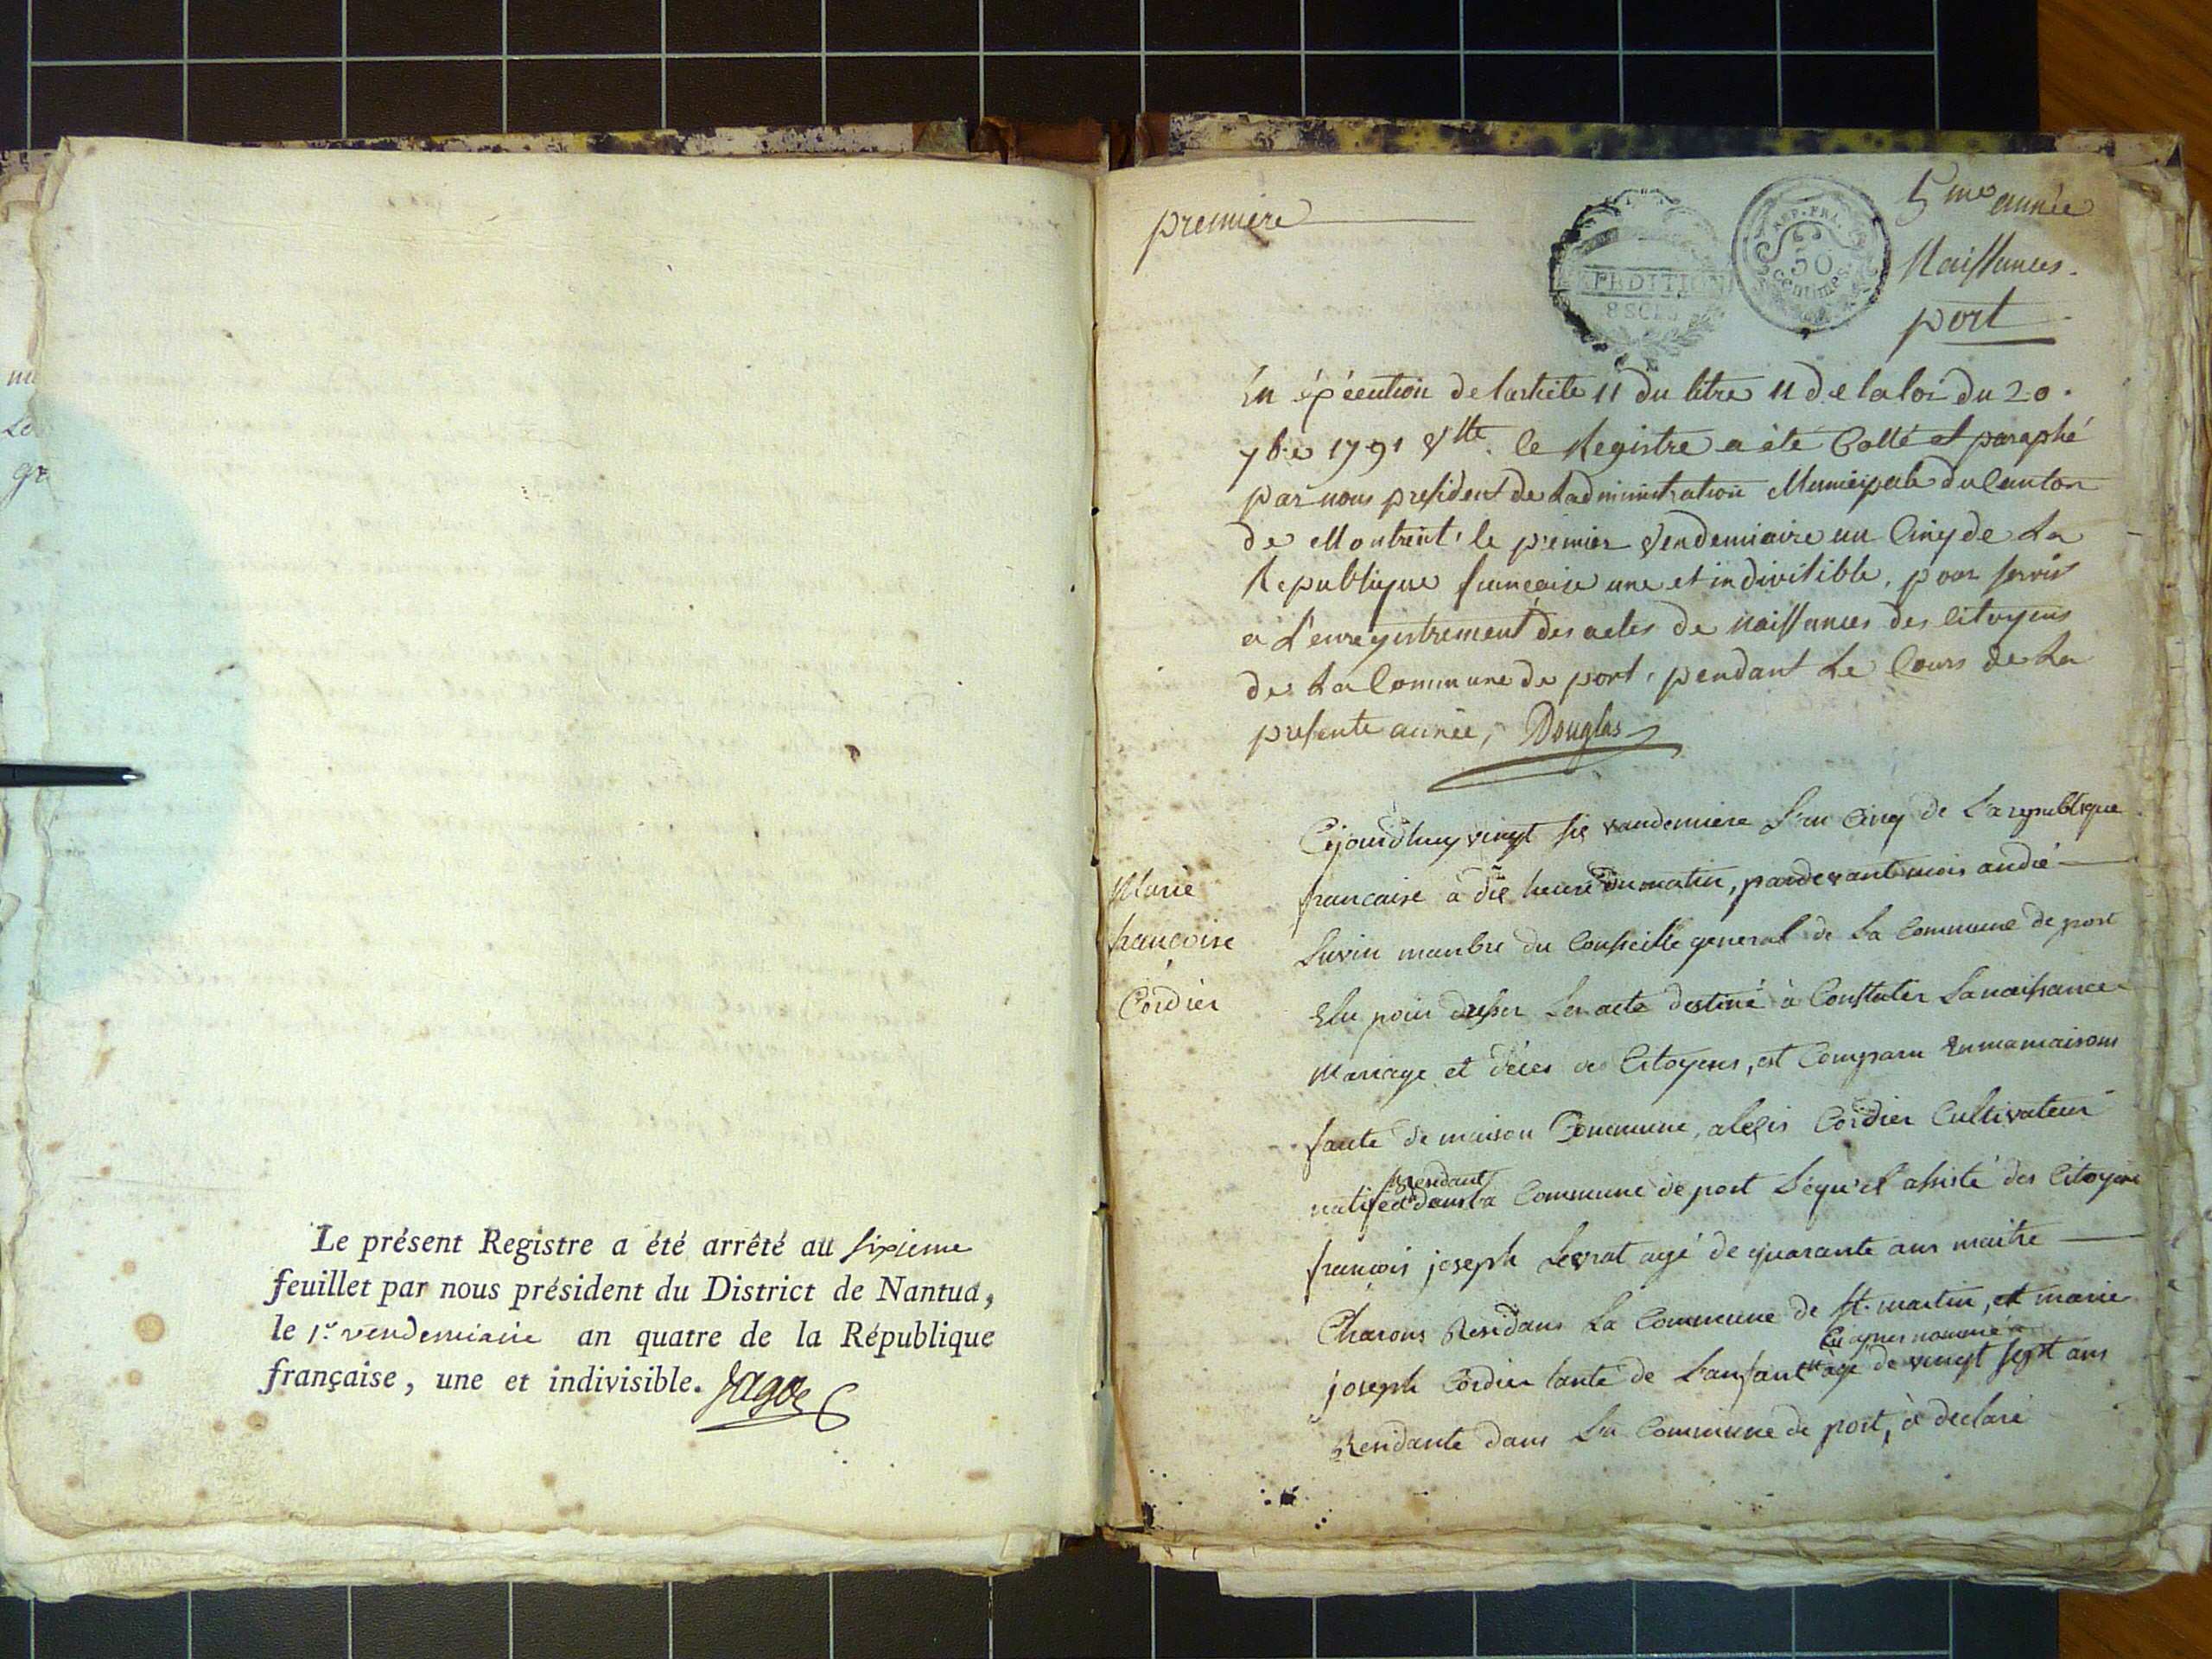 Le présent Registre a été arrêté au sixieme
feuillet par nous président du District de Nantua,
le 1er vendemiaire an quatre de la République
française, une et indivisible.
premiere
5me année
Naissances.
port
REP. FRA.
50
Centimes
PEDITION
En éxécution de l'article 11 du titre 11 de la loi du 20.
7bre 1791 Vtte. le Registre a été Cotté et paraphé
par nous president de Ladministration Municipale du Canton
de Montreal, le premier Vendemiaire an Cinq de La
Republique francaise une et indivisible, pour servir
a L'enregistrement des actes de naissances des Citoyens
de La Commune de port, pendant Le Cours de La
presente année, Douglas
Marie
francoise
Cordier
Cejourdhuy vingt six vandemiere L'an Cinq de La republique
francaise à dix heure du matin, pardevant mois andré
Suvin manbre du Conseille general de La Commune de port
Elu pour dresser Les acte destiné à Constater La naissance
Mariage et déces des Citoyens, est Comparu En ma maisons
faute de maison Commune, alexis Cordier Cultivateur
natif et Residant dans La Commune de port Lequel assisté des Citoyens
francois joseph Levrat agé de quarante ans maitre
Charons Residans La Commune de St. martin, et marie
joseph Cordier tante de L'anfant Cy apres nommé agé de vingt sept ans
Residante dans La Commune de port, à declaré